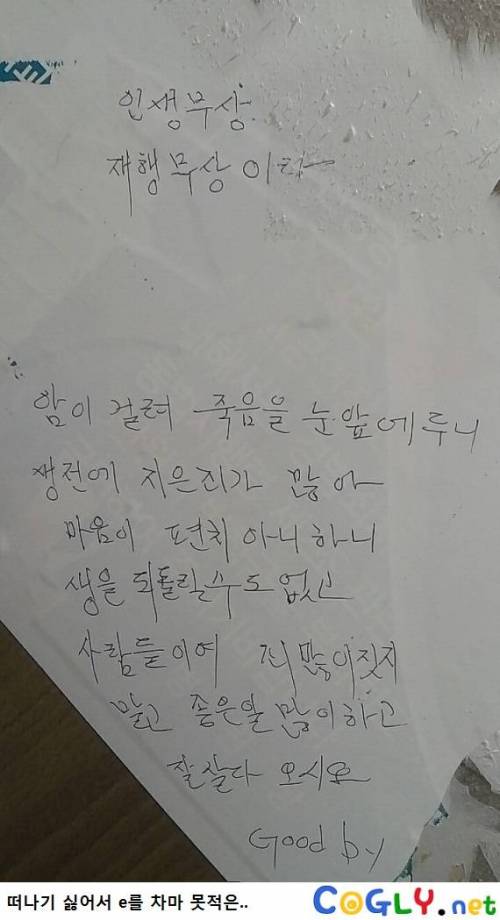 인생무상
재행무상이라
암이 걸려 죽음을 눈앞에두니
생전에 지은죄가 많아
마음이 편치 아니하니
생을 되돌릴수도없고
사람들이여 죄많이짓지
말고 좋은일 많이하고
잘살다 오시요
Good by
떠나기 싫어서 e를 차마 못적은..
COGLY.net